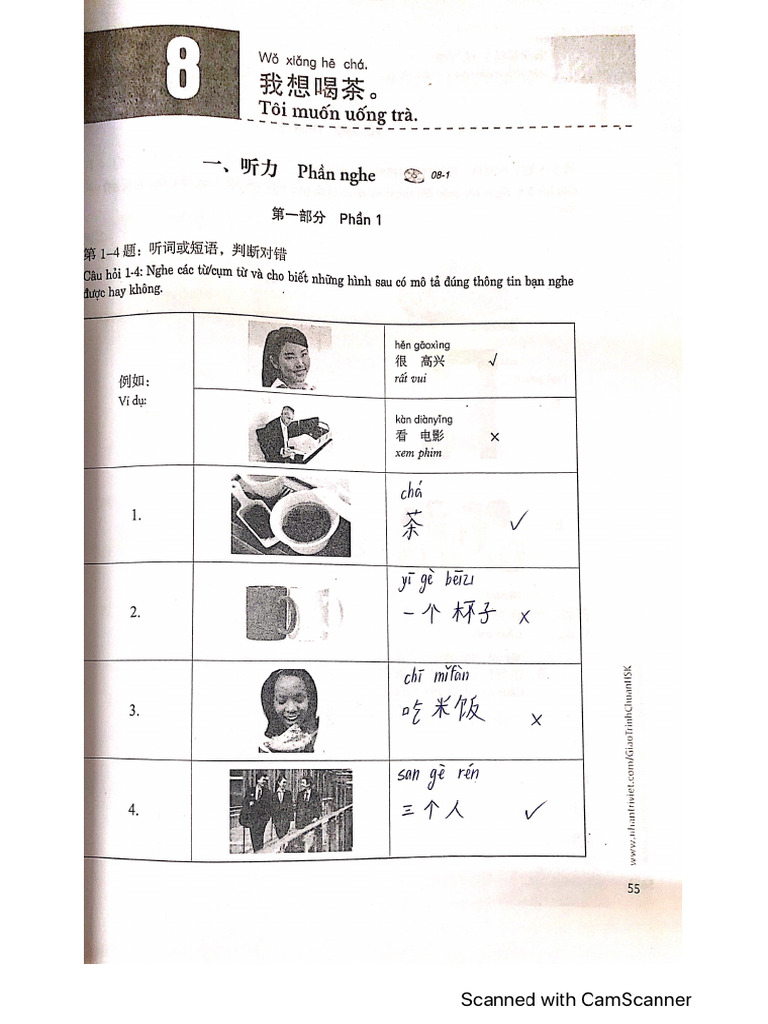 8
Wǒ xiǎng hē chá.
我想喝茶。
Tôi muốn uống trà.
一、听力 Phần nghe 08-1
第一部分 Phần 1
第 1-4 题：听词或短语，判断对错
Câu hỏi 1-4: Nghe các từ/cụm từ và cho biết những hình sau có mô tả đúng thông tin bạn nghe
được hay không.
例如：
Ví dụ:
hěn gāoxìng
很 高兴 √
rất vui
kàn diànyǐng
看 电影 ×
xem phim
1.
chá
茶 ✓
2.
yī gè bēizi
一个 杯子 x
3.
chī mǐfàn
吃米饭 x
4.
san gè rén
三个人 ✓
www.nhantriviet.com/GiaoTrinhChuanHSK
55
Scanned with CamScanner